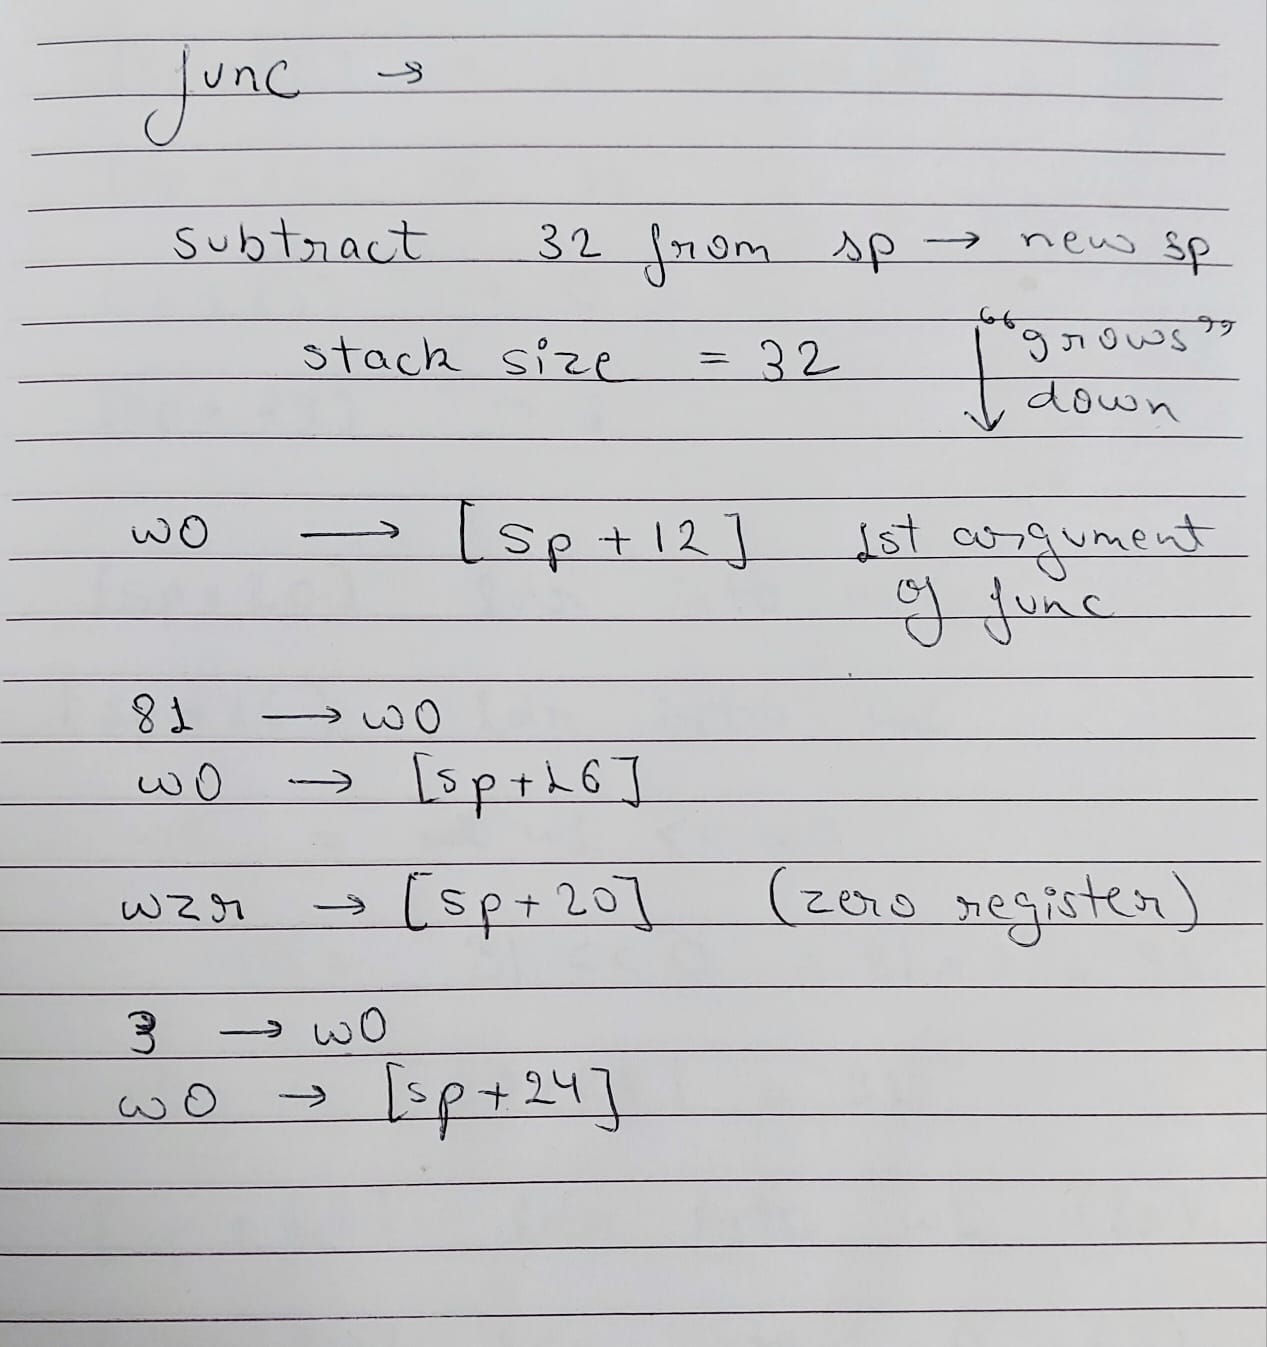 func →
subtract 32 from sp → new sp
stack size = 32 ↓ “grows”
down
w0 → [sp+12] 1st argument
of func
81 → w0
w0 → [sp+16]
wzr → [sp+20] (zero register)
3 → w0
w0 → [sp+24]